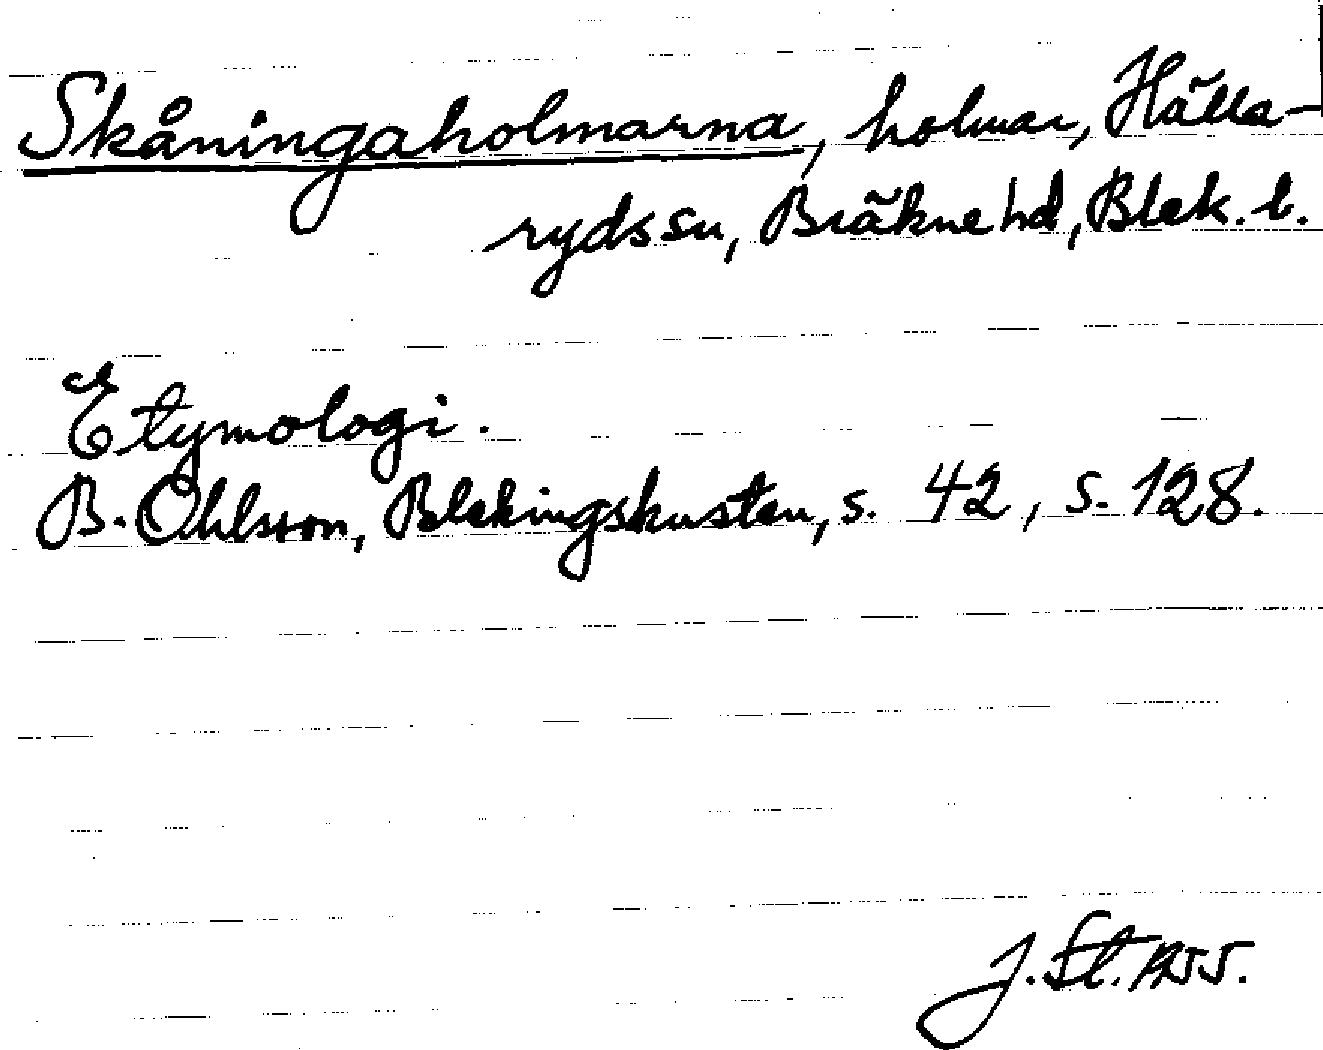 Skåningaholmarna, holmar, Hälla-
rydssn, Bräkne hd, Blek. l.
Etymologi.
B. Ohlsson, Blekingskusten, s. 42, s. 128.
J. St.